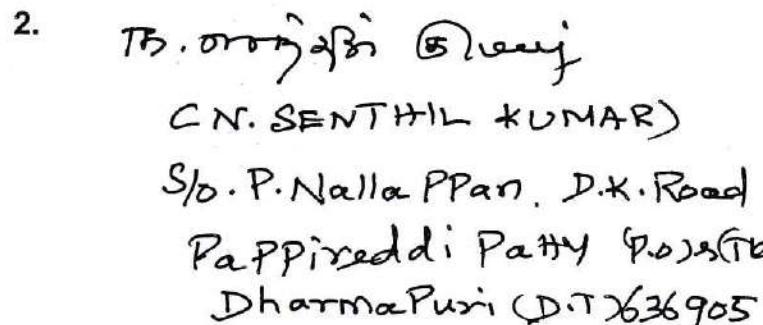 2.
(N. SENTHIL KUMAR)
S/o. P. Nalla PPan. D.K. Road
PaPPireddi Patty (P.o) &(Tk
DharmaPuri (D.T) 636905